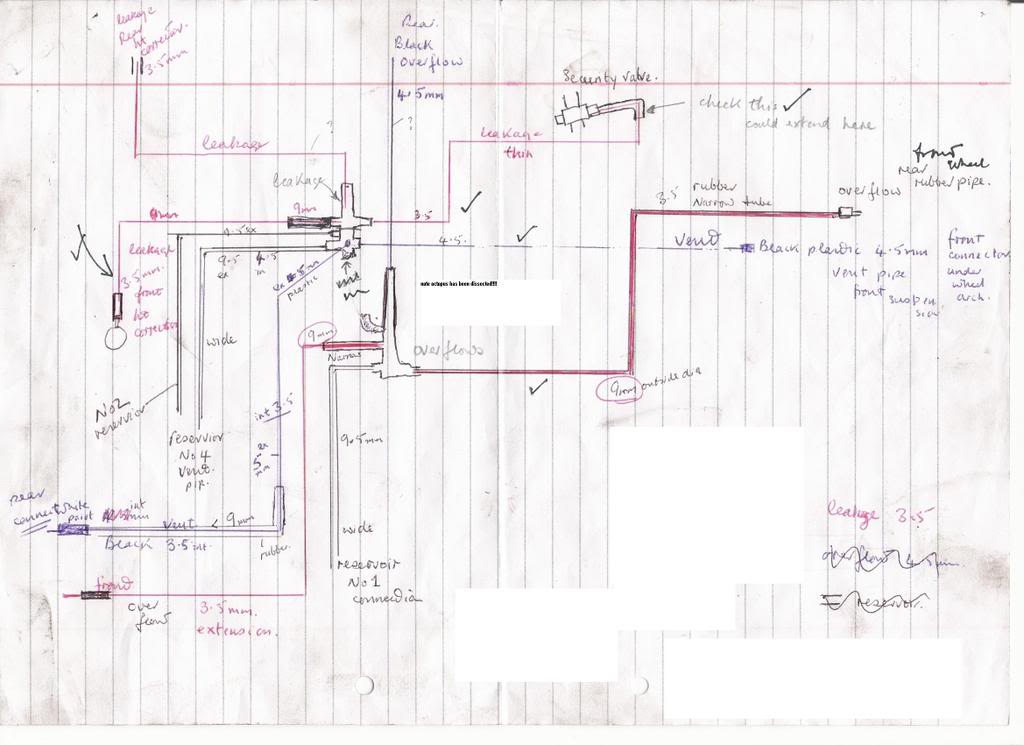 leakage
Rear
ht
corrector.
3.5mm
Rear.
Black
overflow
4.5mm
?
?
Security valve.
check this ✓
could extend here
leakage
leakage
thin
leakage
front wheel
rear
rubber pipe.
overflow
3.5 rubber
Narrow tube
9mm
3.5
4.5.
Vent
Black plastic 4.5mm
vent pipe
front suspension
front
connector
under
wheel
arch.
leakage
3.5mm.
front
ht
corrector
9.5 ex
plastic
note octopus has been dissected!!!!
wide
9mm
Narrow
overflows
9mm outside dia
No2
reservior
reservior
No 4
vent
pip.
int 3.5
ex
5
mm
9.5mm
wide
rear
connect
White
paint
int
vent < 9mm
Black 3.5 int.
rubber.
reservoir
No 1
connectia
front
over
flow
3.5mm.
extension.
leakage 3.5
overflow 4.5mm.
reservoir.